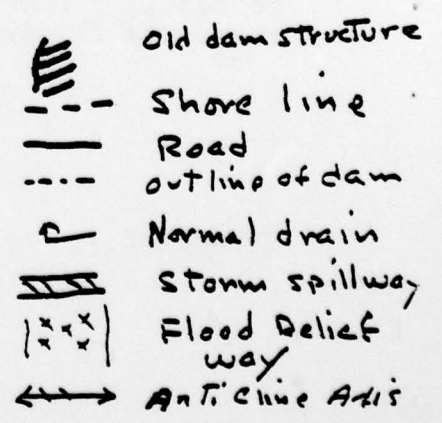 Old dam structure
Shore line
Road
outline of dam
Normal drain
Storm spillway
Flood Relief
way
AnTicline Axis